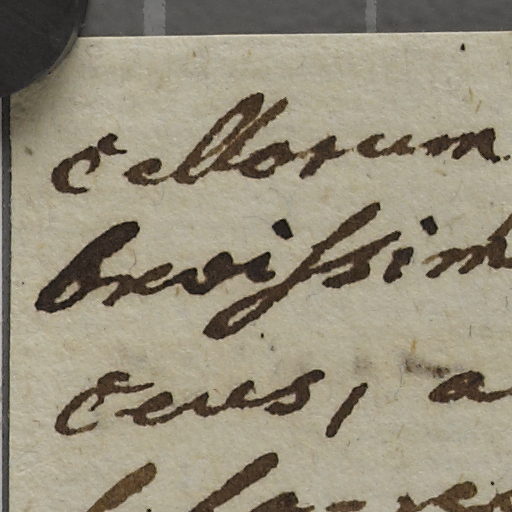 cellorum
brevissim
ceus, a